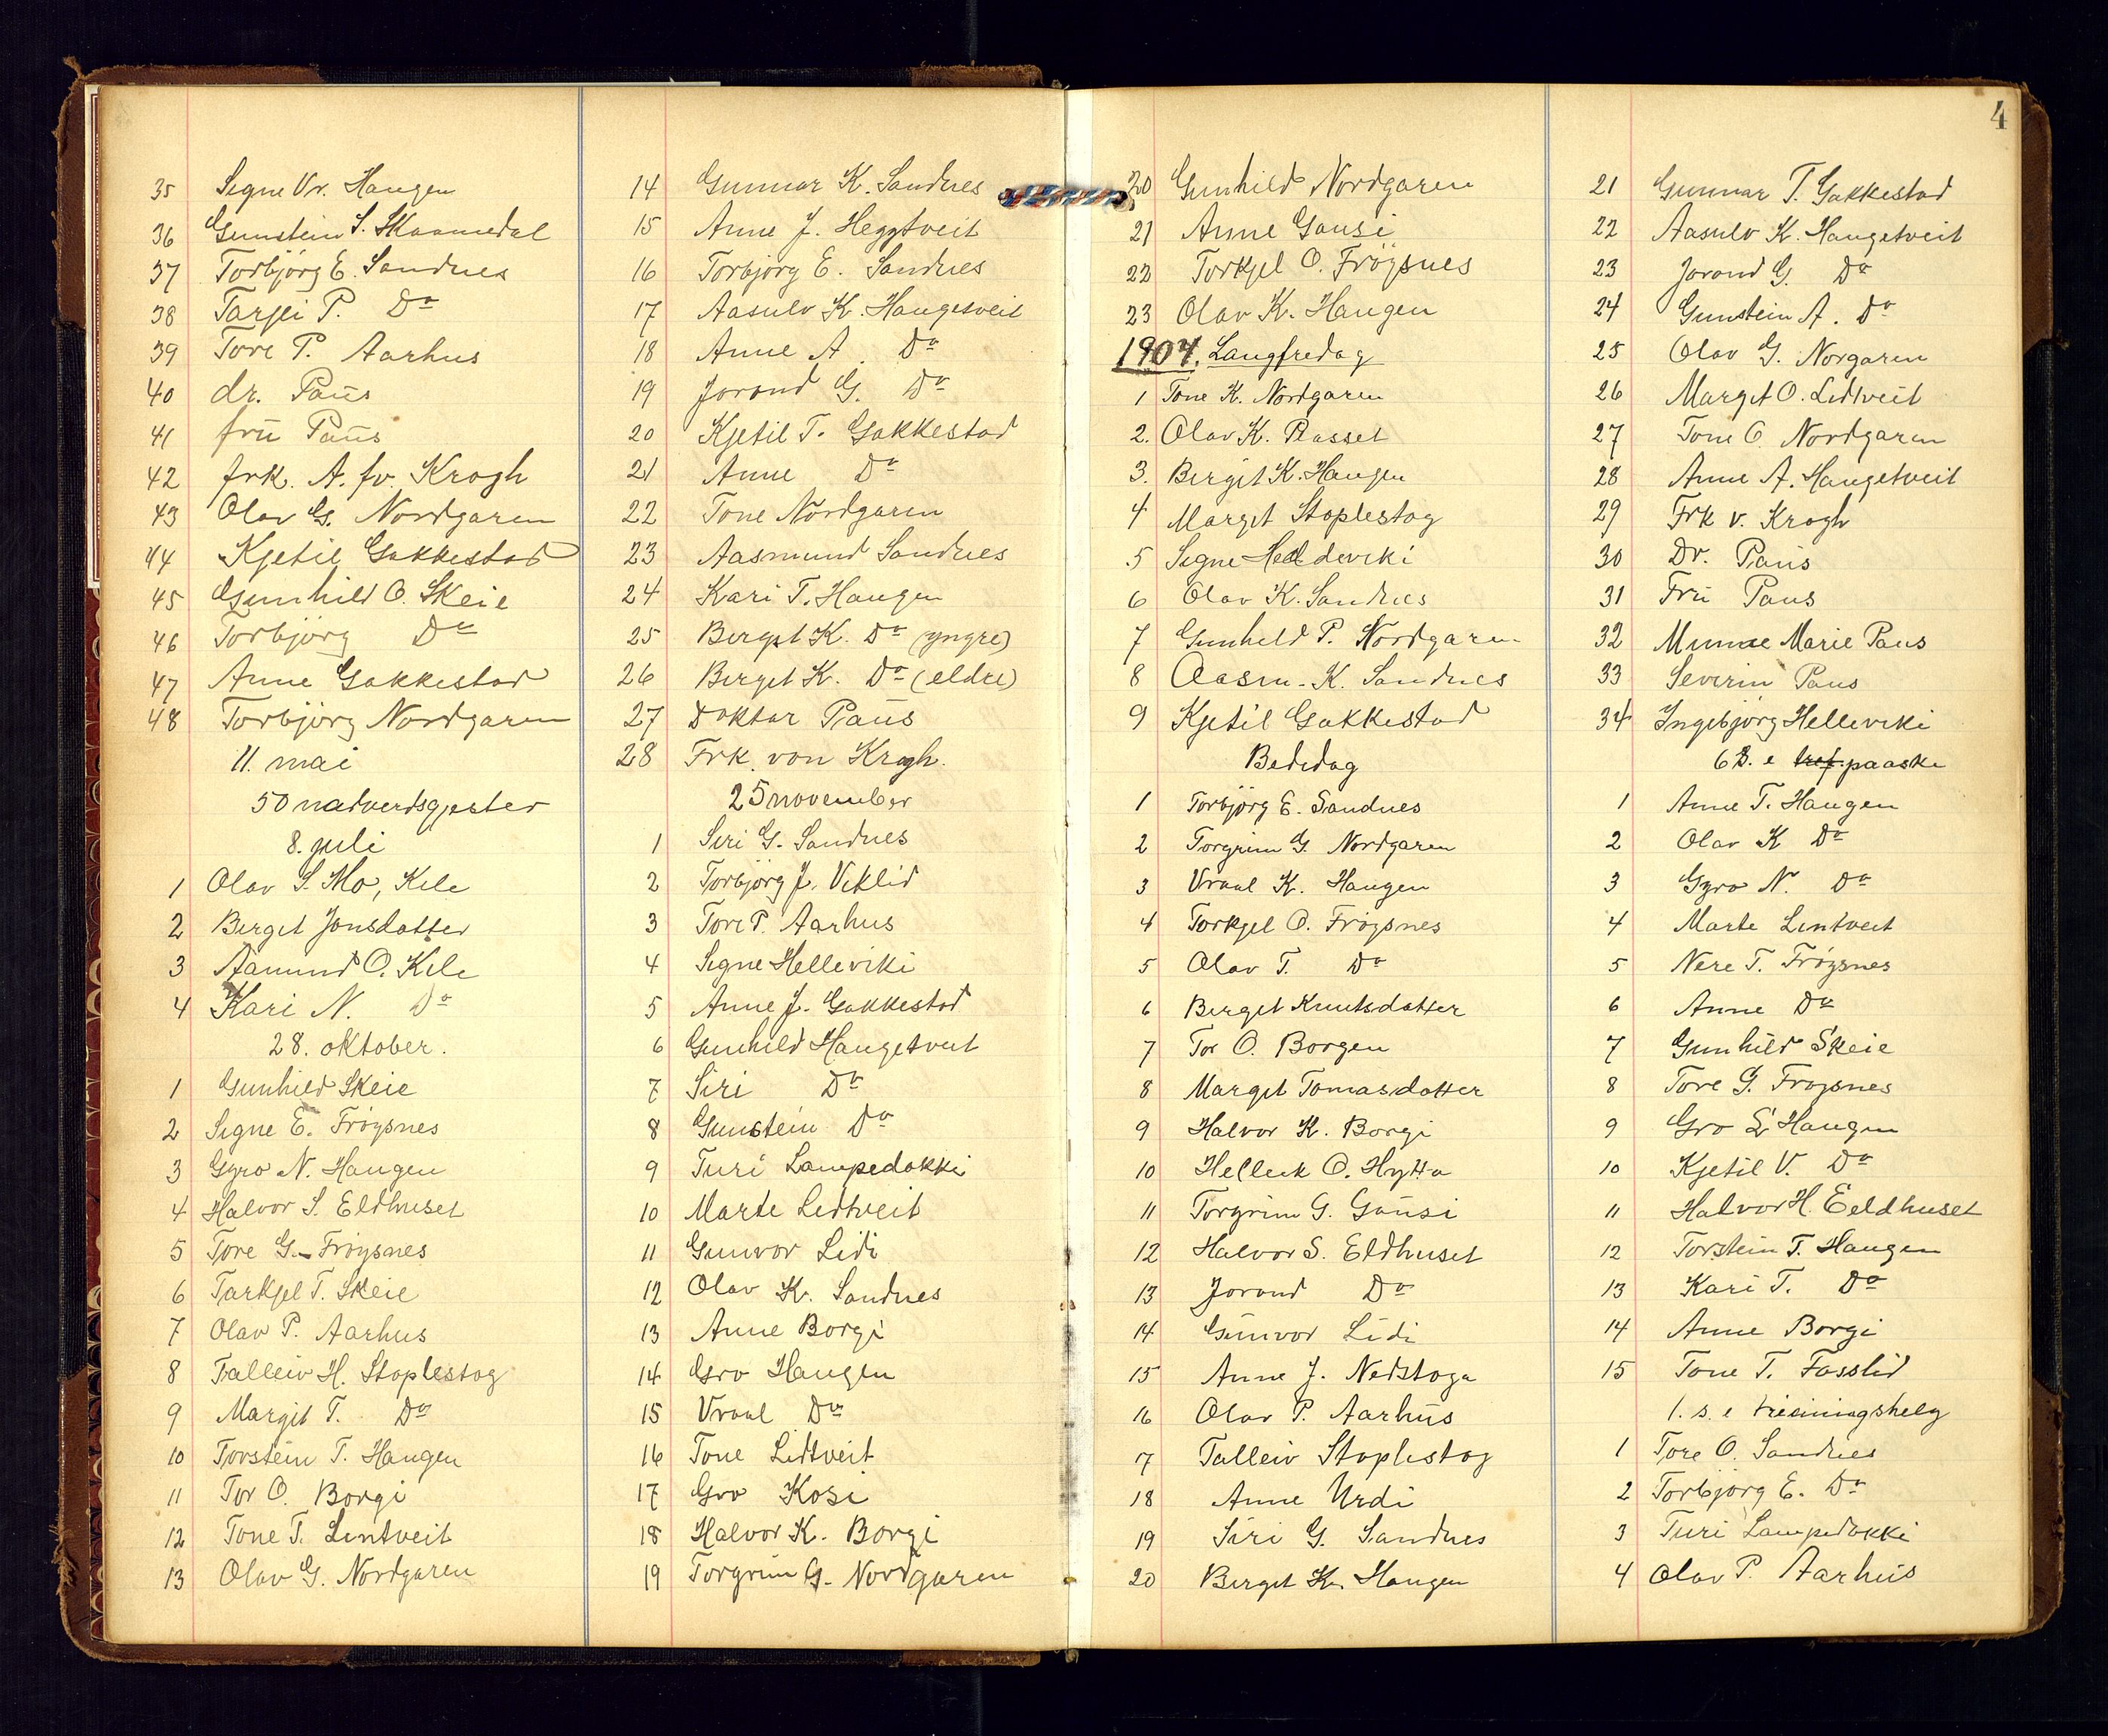 35 Signe Vr. Haugen
36 Gunstein S. Skaamedal
37 Torbjörg E. Sandnes
38 Tarjei P. Do
39 Tore P. Aarhus
40 dr. Paus
41 fru Paus
42 frk. A. fv. Krogh
43 Olav G. Nordgaren
44 Kjetil Gakkestad
45 Gunhild O. Skeie
46 Torbjörg Do
47 Anne Gakkestad
48 Torbjörg Nordgaren
11. mai
50 natverdsgjester
8. juli
1 Olav S. Mo, Kile
2 Berget Jonsdatter
3 Aamund O. Kile
4 Kari N. Do
28. oktober.
1 Gunhild Skeie
2 Signe E. Fröysnes
3 Gyro N. Haugen
4 Halvor S. Eldhuset
5 Tore G. Fröysnes
6 Tarkjel T. Skeie
7 Olav P. Aarhus
8 Talleiv H. Stoplestog
9 Margit T. Do
10 Torstein T. Haugen
11 Tor O. Borgi
12 Tone T. Lintveit
13 Olav G. Nordgaren
14 Gunnar K. Sandnes
15 Anne J. Heggtveit
16 Torbjörg E. Sandnes
17 Aasulv K. Haugetveit
18 Anne A. Do
19 Jorond G. Do
20 Kjetil T. Gakkestad
21 Anne Do
22 Tone Nordgaren
23 Aasmund Sandnes
24 Kari T. Haugen
25 Berget K. Do (yngre)
26 Berget K. Do (eldre)
27 Doktar Paus
28 Frk. von Krogh.
25 november
1 Siri G. Sandnes
2 Torbjörg J. Viklid
3 Tore P. Aarhus
4 Signe Helleviki
5 Anne J. Gakkestad
6 Gunhild Haugetveit
7 Siri Do
8 Gunstein Do
9 Turi Lampedokki
10 Marte Lidtveit
11 Gunvor Lidi
12 Olav K. Sandnes
13 Anne Borgi
14 Gro Haugen
15 Vraal Do
16 Tone Lidtveit
17 Gro Kosi
18 Halvor K. Borgi
19 Torgrim G. Nordgaren
4
20 Gunhild Nordgaren
21 Anne Gausi
22 Torkjel O. Fröysnes
23 Olav K. Haugen
1904. Langfredag
1 Tone K. Nordgaren
2. Olav K. Rasset
3. Bergit K. Haugen
4 Marget Stoplestog
5 Signe Helleviki
6 Olav K. Sandnes
7 Gunhild P. Nordgaren
8 Aasm. K. Sandnes
9 Kjetil Gakkestad
Bededag
1 Torbjörg E. Sandnes
2 Torgrim G. Nordgaren
3 Vraal K. Haugen
4 Torkjel O. Fröysnes
5 Olav T. Do
6 Berget Knutsdatter
7 Tor O. Borgen
8 Marget Tomasdatter
9 Halvor K. Borgi
10 Helleik O. Hytta
11 Torgrim G. Gausi
12 Halvor S. Eldhuset
13 Jorond Do
14 Gunvor Lidi
15 Anne J. Nedstoga
16 Olav P. Aarhus
17 Talleiv Stoplestog
18 Anne Urdi
19 Siri G. Sandnes
20 Berget K. Haugen
21 Gunnar T. Gakkestad
22 Aasulv K. Haugetveit
23 Jorond G. Do
24 Gunstein A. Do
25 Olav G. Norgaren
26 Marget O. Lidtveit
27 Tone O. Nordgaren
28 Anne A. Haugetveit
29 Frk v. Krogh
30 Dr. Paus
31 Fru Paus
32 Minne Marie Paus
33 Severin Paus
34 Ingebjörg Helleviki
6 S. e tref. paaske
1 Anne T. Haugen
2 Olav K Do
3 Gyro N. Do
4 Marte Lintveit
5 Nere T. Fröysnes
6 Anne Do
7 Gunhild Skeie
8 Tore G. Fröysnes
9 Gro S. Haugen
10 Kjetil V. Do
11 Halvor H. Eeldhuset
12 Torstein T. Haugen
13 Kari T. Do
14 Anne Borgi
15 Tone T. Fosslid
1. s. e treiningshelg
1 Tore O. Sandnes
2 Torbjörg E. Do
3 Turi Lampedokki
4 Olav P. Aarhus